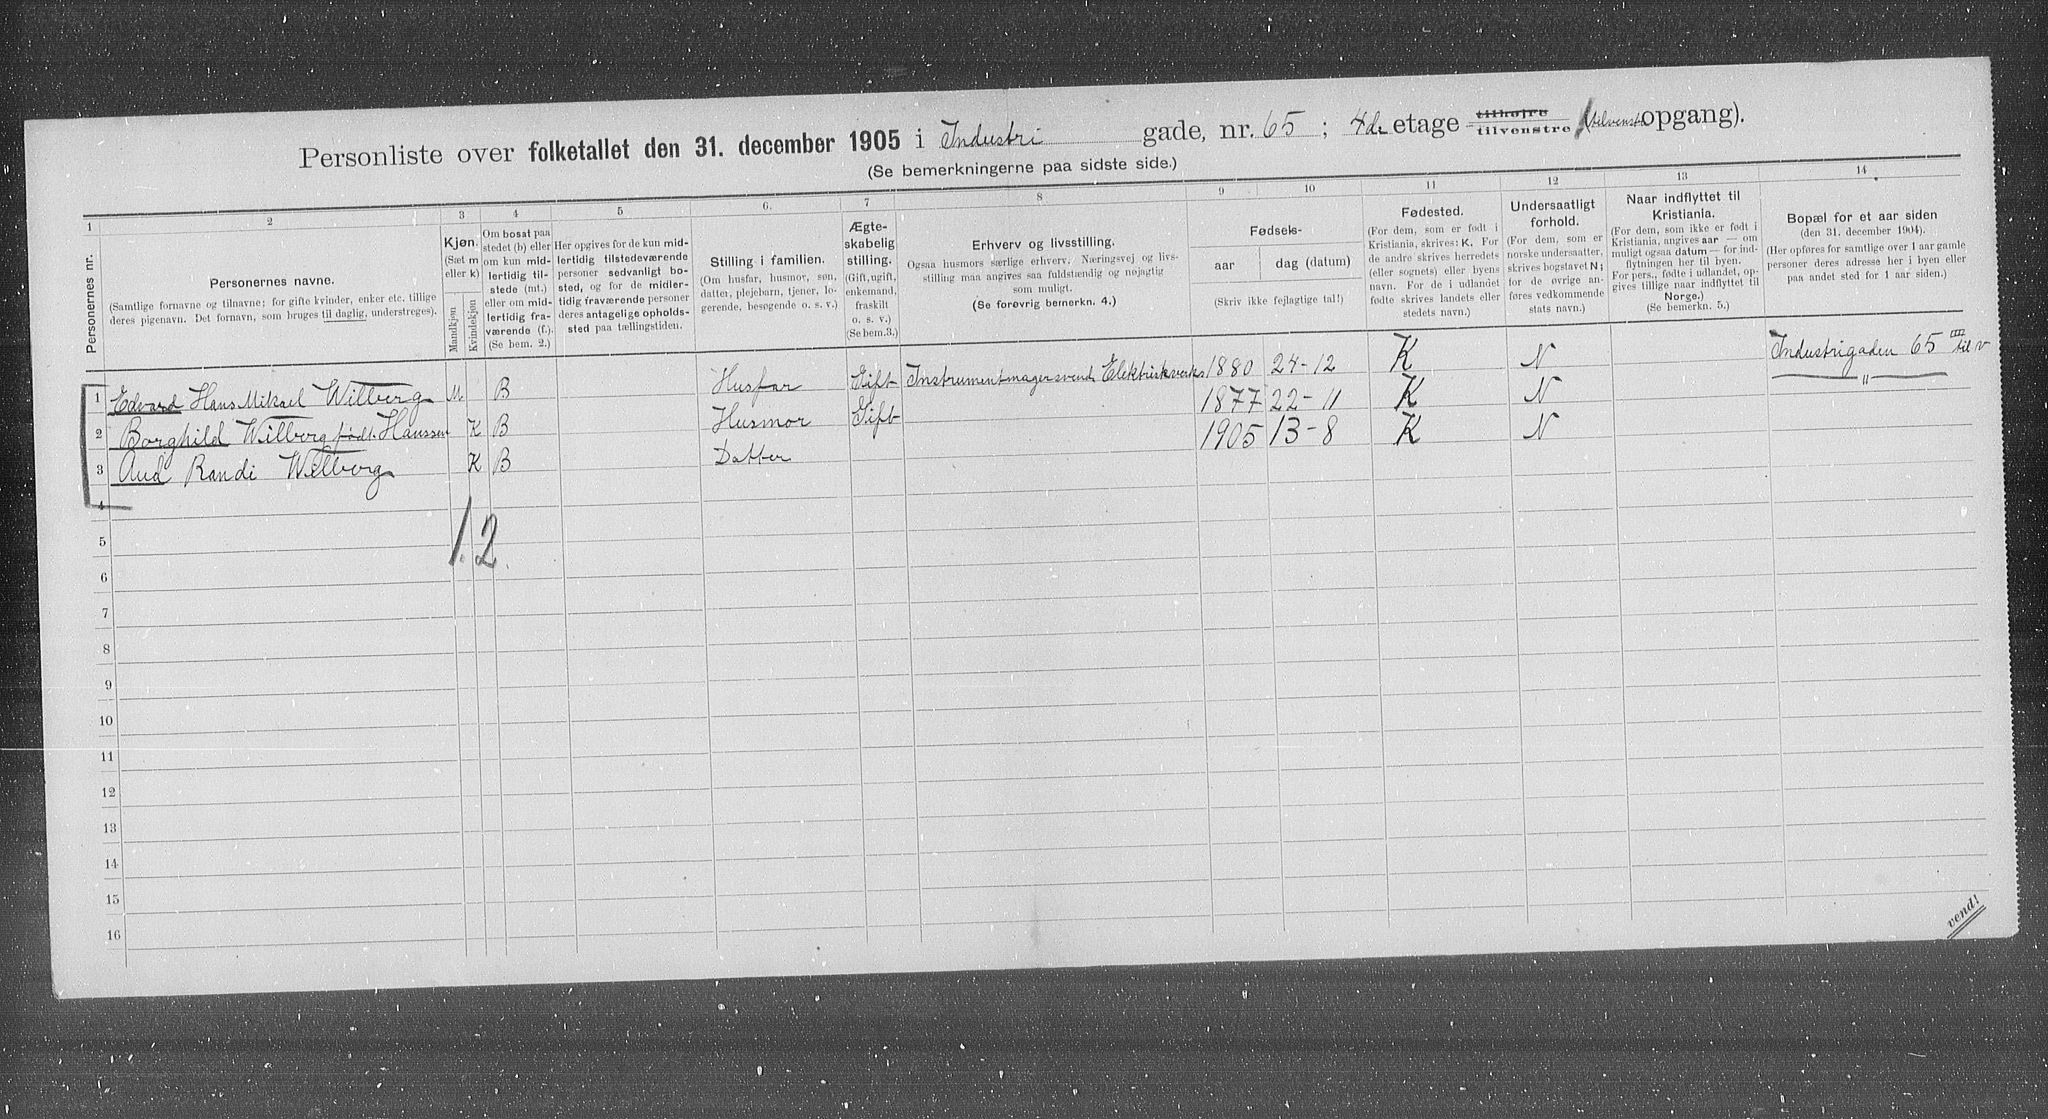 Personliste over folketallet den 31. december 1905 i Industri gade, nr. 65 ; 4de etage tilhøjre tilvenstre (tilvenstre opgang).
(Se bemerkningerne paa sidste side.)
1 2 3 4 5 6. 7 8 9 10 11 12 13 14
Personernes nr.
Personernes navne.
(Samtlige fornavne og tilnavne; for gifte kvinder, enker etc. tillige
deres pigenavn. Det fornavn, som bruges til daglig, understreges).
Kjøn.
(Sæt m
eller k)
Mandkjøn
Kvindekjøn
Om bosat paa
stedet (b) eller
om kun mid-
lertidig til-
stede (mt.)
eller om mid-
lertidig fra-
værende (f.).
(Se bem. 2.)
Her opgives for de kun mid-
lertidig tilstedeværende
personer sedvanligt bo-
sted, og for de midler-
tidig fraværende personer
deres antagelige opholds-
sted paa tællingstiden.
Stilling i familien.
(Om husfar, husmor, søn,
datter, plejebarn, tjener, lo-
gerende, besøgende o. s. v.)
Ægte-
skabelig
stilling.
(Gift, ugift,
enkemand,
fraskilt
o. s. v.)
(Se bem.3.)
Erhverv og livsstilling.
Ogsaa husmors særlige erhverv. Næringsvej og livs-
stilling maa angives saa fuldstændig og nøjagtig
som muligt.
(Se forøvrig bemerkn. 4.)
Fødsels-
aar
dag (datum)
(Skriv ikke fejlagtige tal!)
Fødested.
(For dem, som er født i
Kristiania, skrives: K. For
de andre skrives herredets
(eller sognets) eller byens
navn. For de i udlandet
fødte skrives landets eller
stedets navn.)
Undersaatligt
forhold.
(For dem, som er
norske undersaatter,
skrives bogstavet N;
for de øvrige an-
føres vedkommende
stats navn.)
Naar indflyttet til
Kristiania.
(For dem, som ikke er født i
Kristiania, angives aar — om
muligt ogsaa datum — for ind-
flytningen her til byen.
For pers., fødte i udlandet, op-
gives tillige naar indflyttet til
Norge.)
(Se bemerkn. 5.)
Bopæl for et aar siden
(den 31. december 1904).
(Her opføres for samtlige over 1 aar gamle
personer deres adresse her i byen eller
paa andet sted for 1 aar siden.)
1 Edvard Hans Mikael Wilberg M B Husfar Gift Instrumentmagersvend Elektrickverks 1880 24-12 K N Industrigaden 65 III til v
2 Borghild Wilberg født Hanssen K B Husmor Gift 1877 22-11 K N "
3 Aud Randi Wilberg K B Datter 1905 13-8 K N
4
5
1. 2.
6
7
8
9
10
11
12
13
14
15
16
vend!